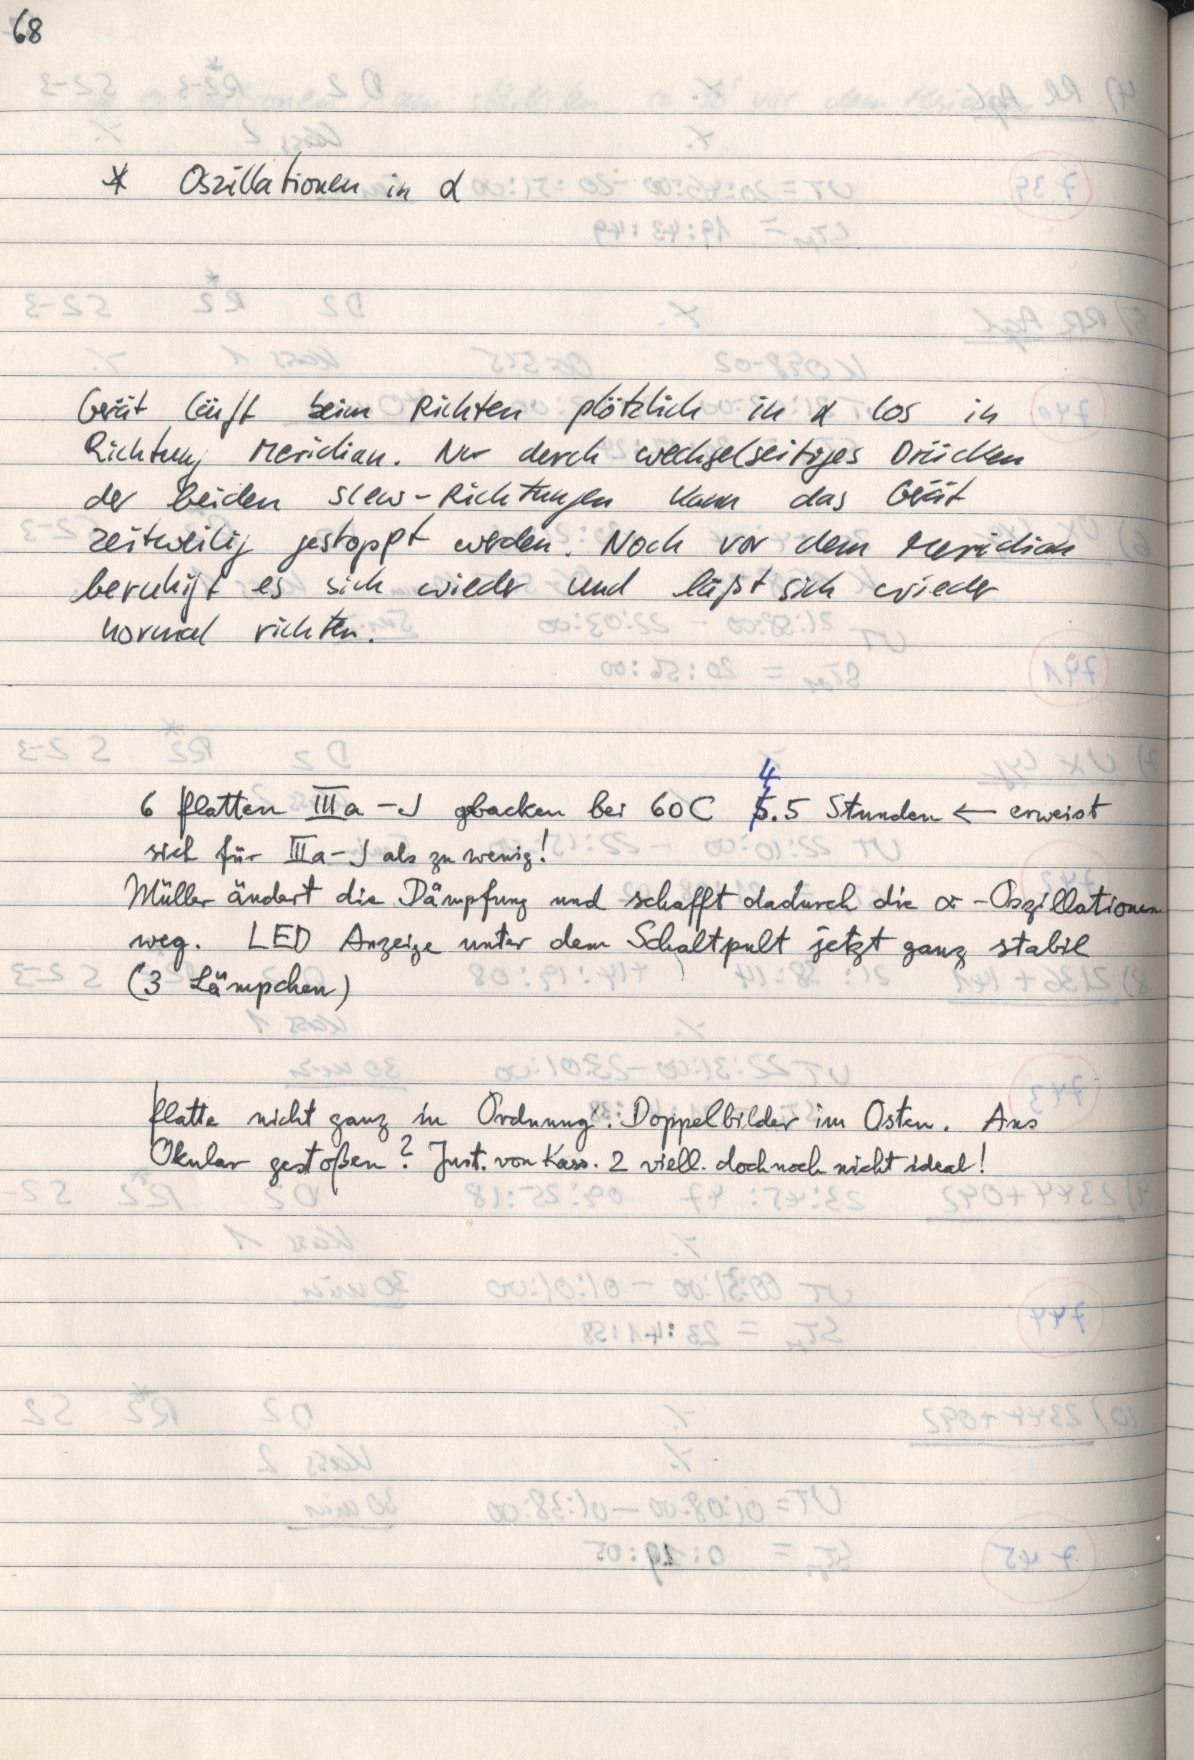 68
* Oszillationen in α
Gerät läuft beim Richten plötzlich in α los in
Richtung Meridian. Nur durch wechselseitiges Drücken
der beiden slew-Richtungen kann das Gerät
zeitweilig gestoppt werden. Noch vor dem Meridian
beruhigt es sich wieder und läßt sich wieder
normal richten.
4
6 Platten IIIa-J gebacken bei 60C 5.5 Stunden ← erweist
sich für IIIa-J als zu wenig!
Müller ändert die Dämpfung und schafft dadurch die α-Oszillationen
weg. LED Anzeige unter dem Schaltpult jetzt ganz stabil
(3 Lämpchen)
Platte nicht ganz in Ordnung: Doppelbilder im Osten. Ans
Okular gestoßen? Just. von Kass. 2 viell. doch noch nicht ideal!